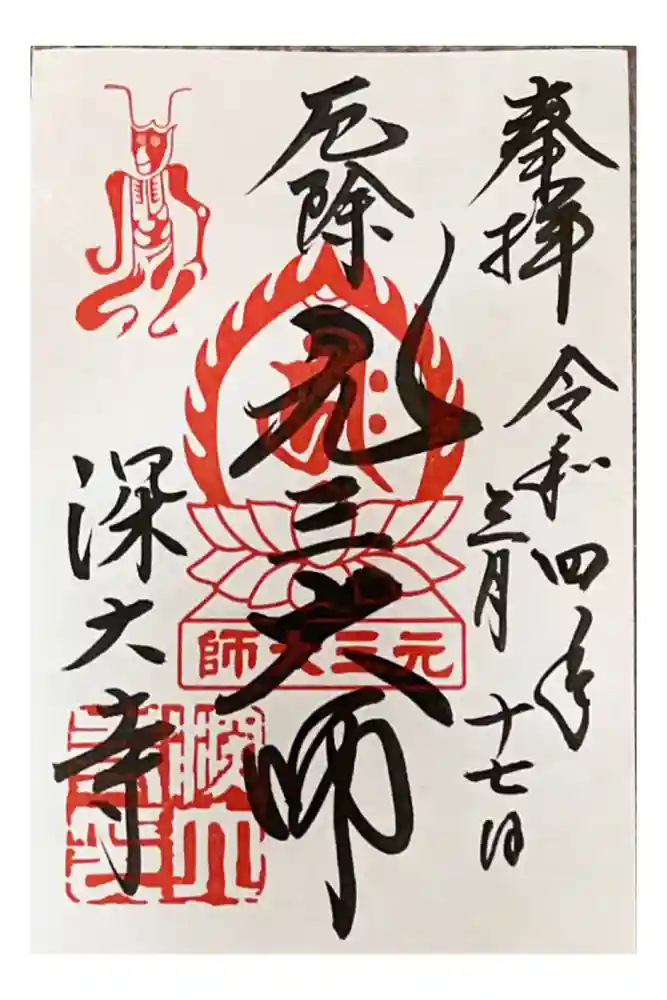 奉拝
令和四年
三月十七日
厄除
元三大師
師大三元
深大寺
深大寺